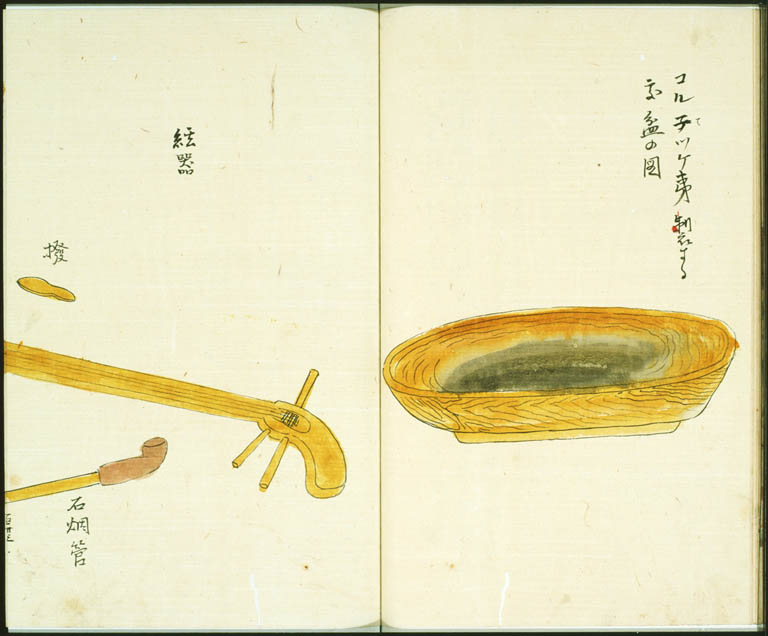 コル子ツケ夷製する
盆の図
絃器
撥
石烟管